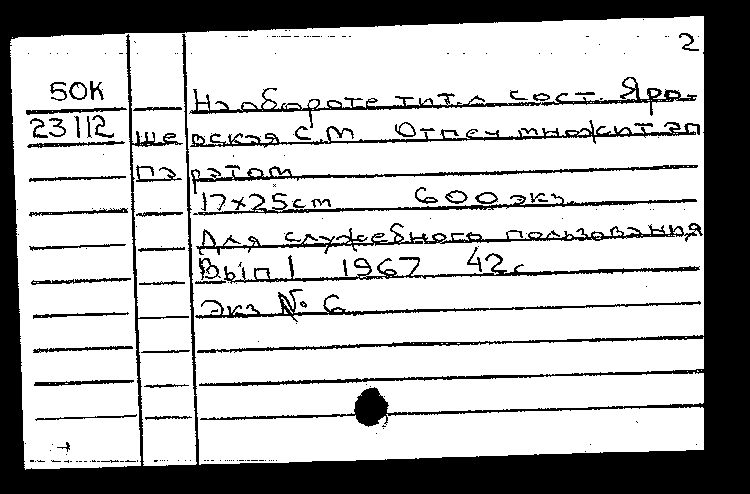 2
50К На обороте тит. л сост. Яро-
23112 шевская С. М. Отпеч множит ап
паратом
17х25см 600 экз.
Для служебного пользования
Вып 1 1967 42с
Экз № 6